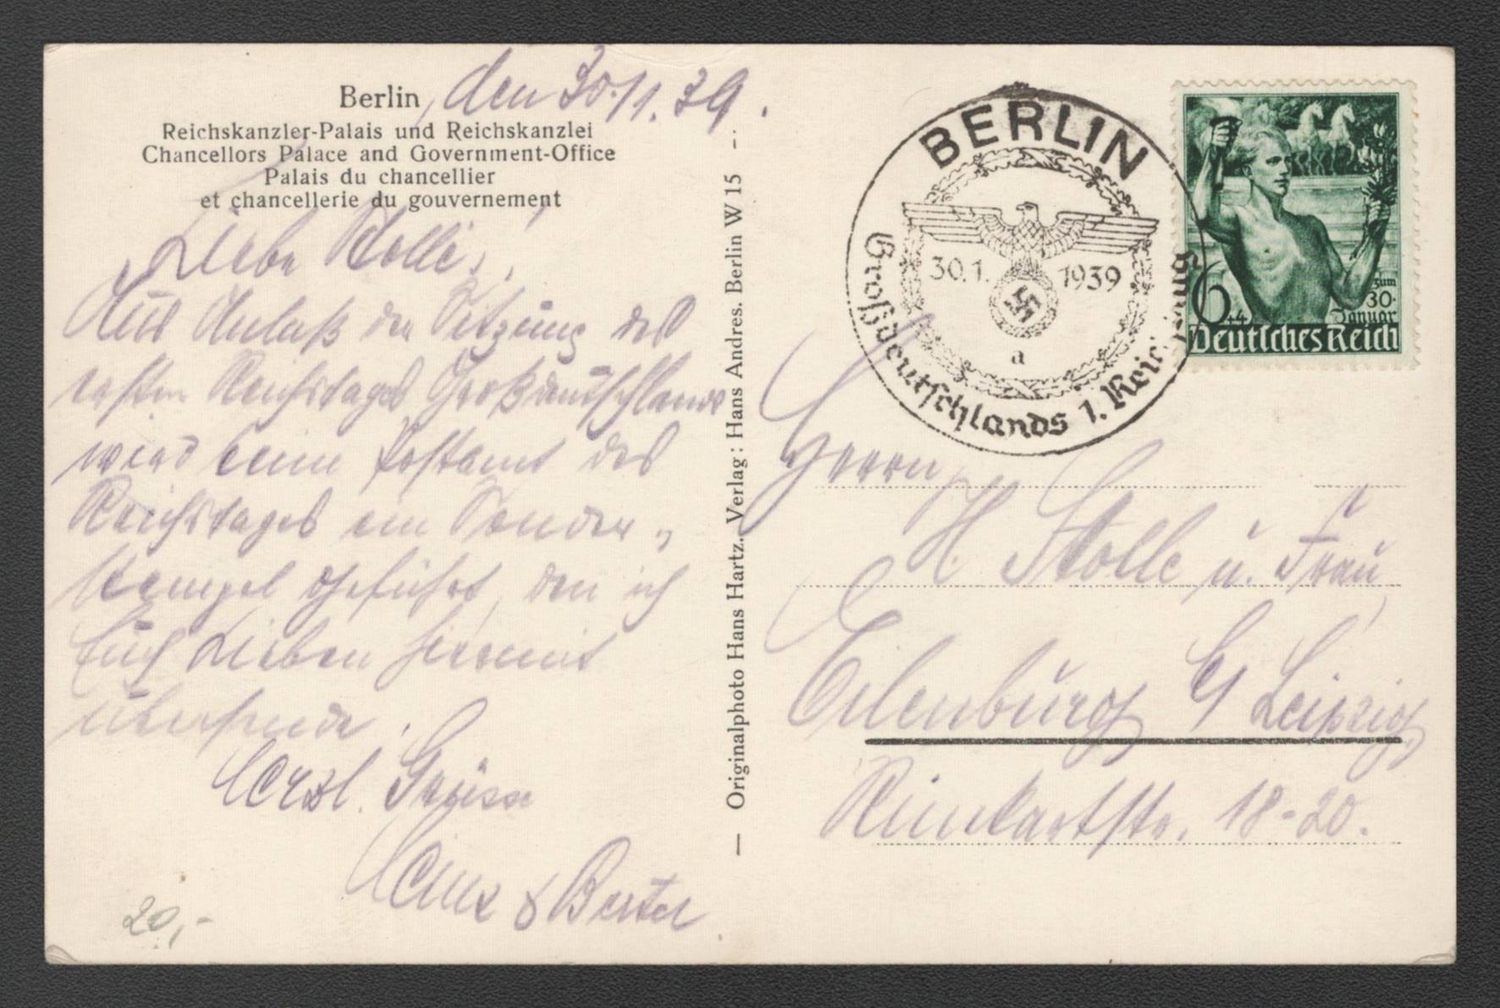 Berlin, den 30.11.39.
Reichskanzler-Palais und Reichskanzlei
Chancellors Palace and Government-Office
Palais du chancellier
et chancellerie du gouvernement
Liebe
Aus Anlaß der Sitzung des
ersten Reichstages Großdeutschlands
wird beim Postamt des
Reichstages ein Sonder„
stempel geführt, den ich
Euch Lieben hiermit
übersende.
Herzl. Grüsse
Originalphoto Hans Hartz. Verlag: Hans Andres. Berlin W 15
BERLIN
30.1. 1939
a
Großdeutschlands 1. Reichstag
6+4
zum
30.
Januar
Deutsches Reich
Herrn
H. Stolle u. Frau
Eilenburg b/ Leipzig
18-20.
20,-